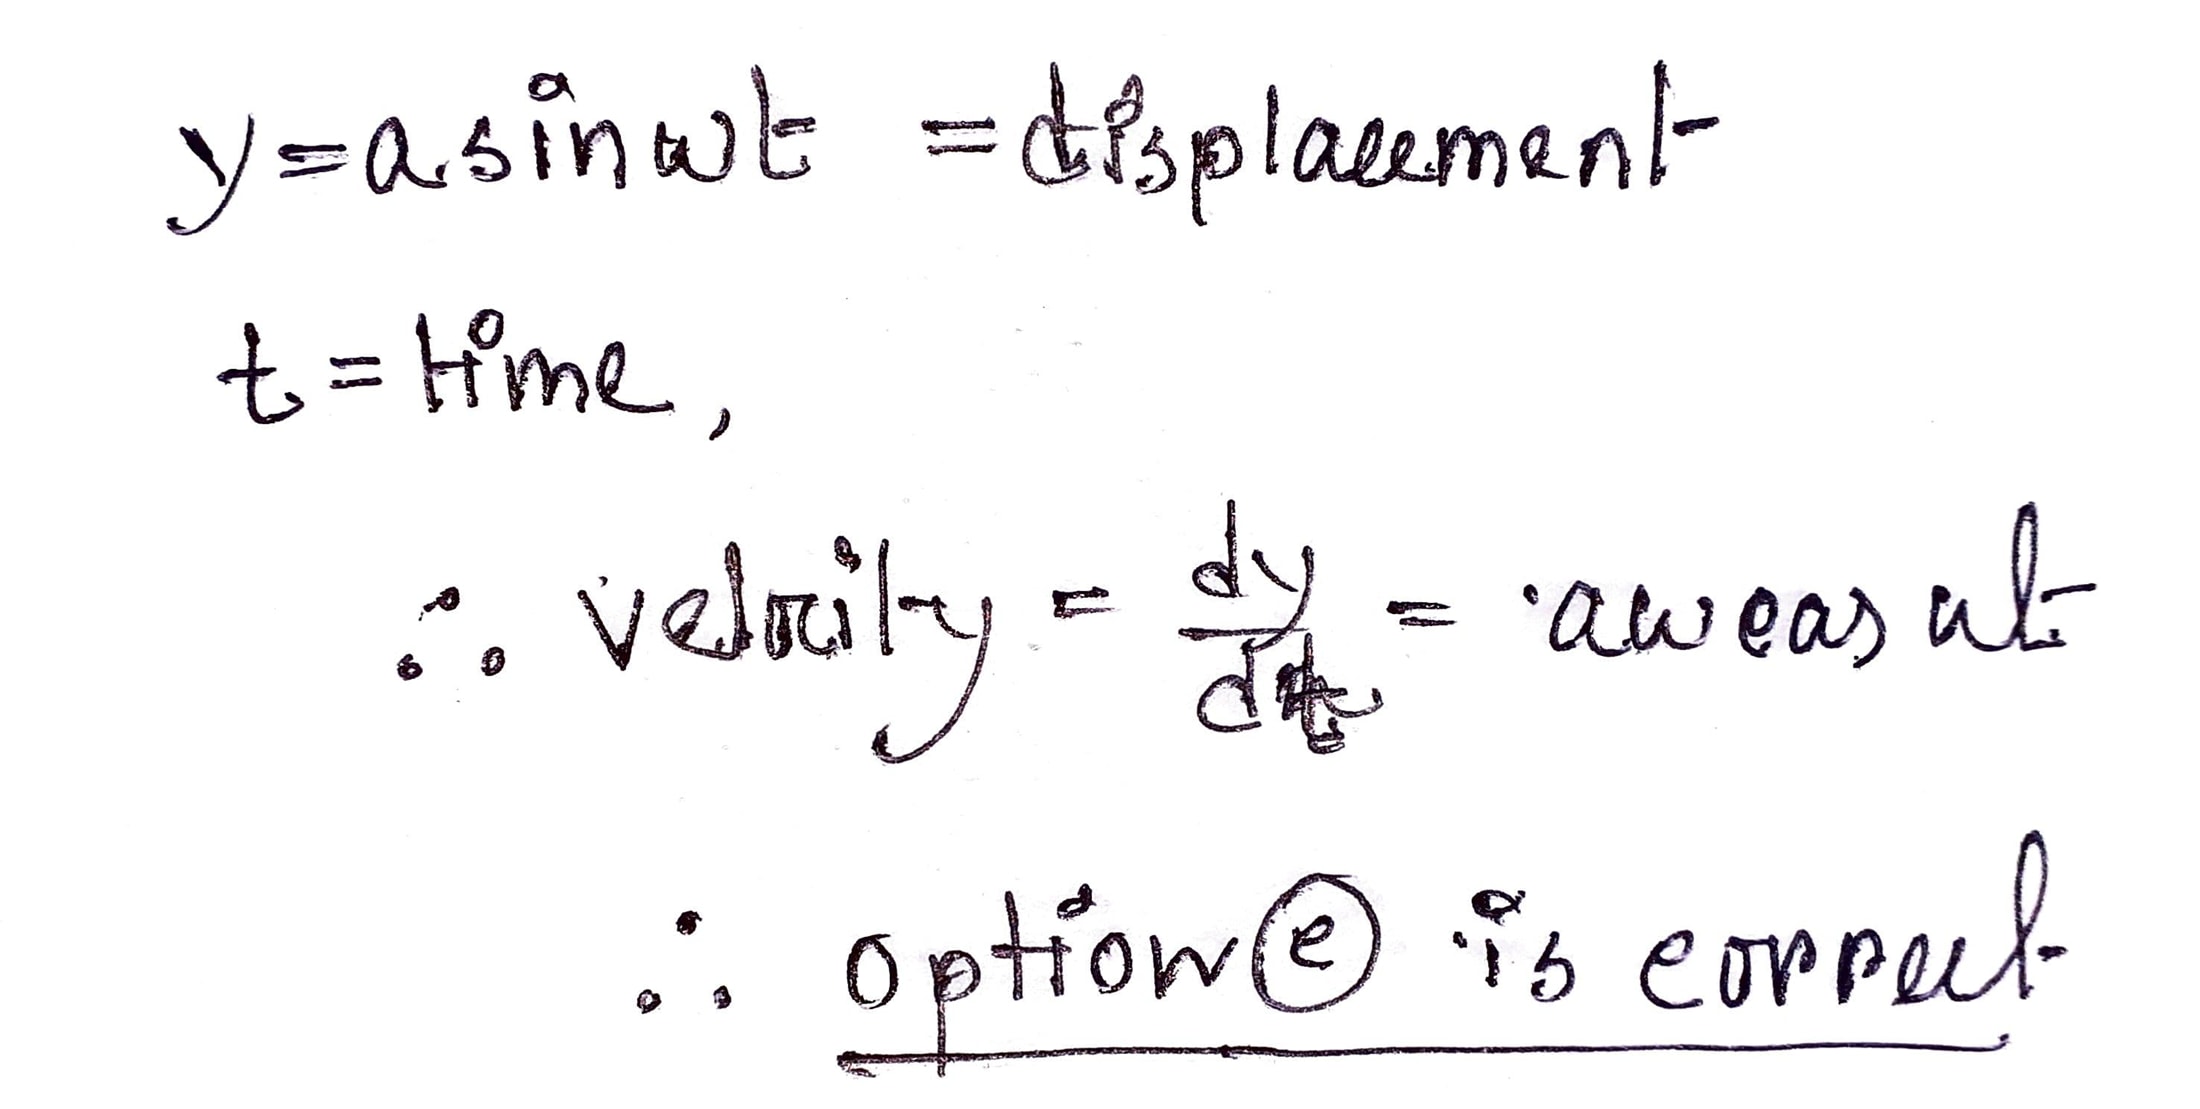 y = a sin wt = displacement
t = time,
∴ velocity = dy/dt = aw cos wt
∴ option (c) is correct